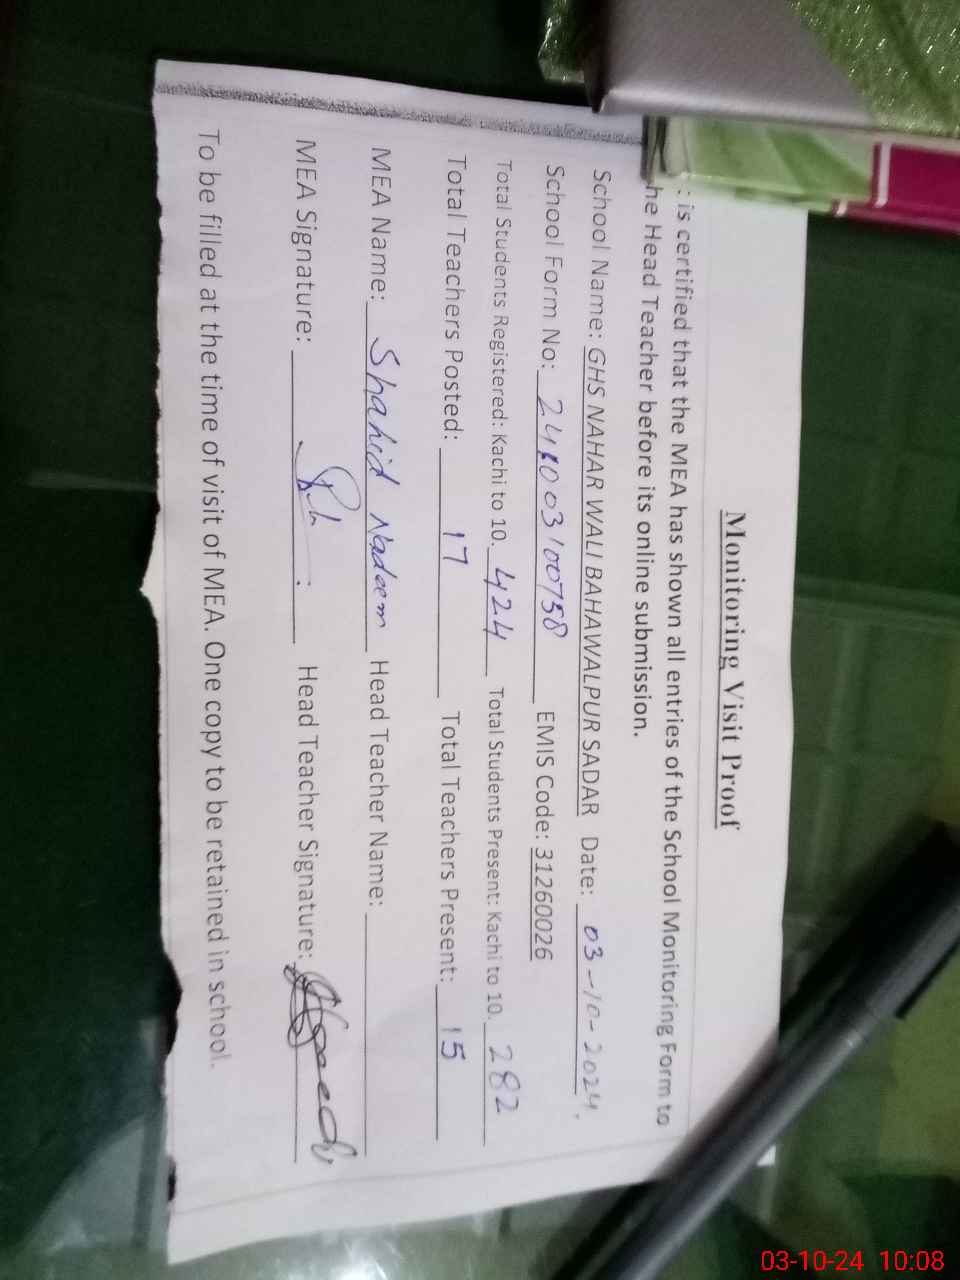 Monitoring Visit Proof
: is certified that the MEA has shown all entries of the School Monitoring Form to
he Head Teacher before its online submission.
School Name: GHS NAHAR WALI BAHAWALPUR SADAR Date: 03-10-2024.
School Form No: EMIS Code: 31260026
Total Students Registered: Kachi to 10. 424 Total Students Present: Kachi to 10. 282
Total Teachers Posted: 17 Total Teachers Present: 15
MEA Name: Shahid Nadeem Head Teacher Name:
MEA Signature: Head Teacher Signature:
To be filled at the time of visit of MEA. One copy to be retained in school.
03-10-24 10:08